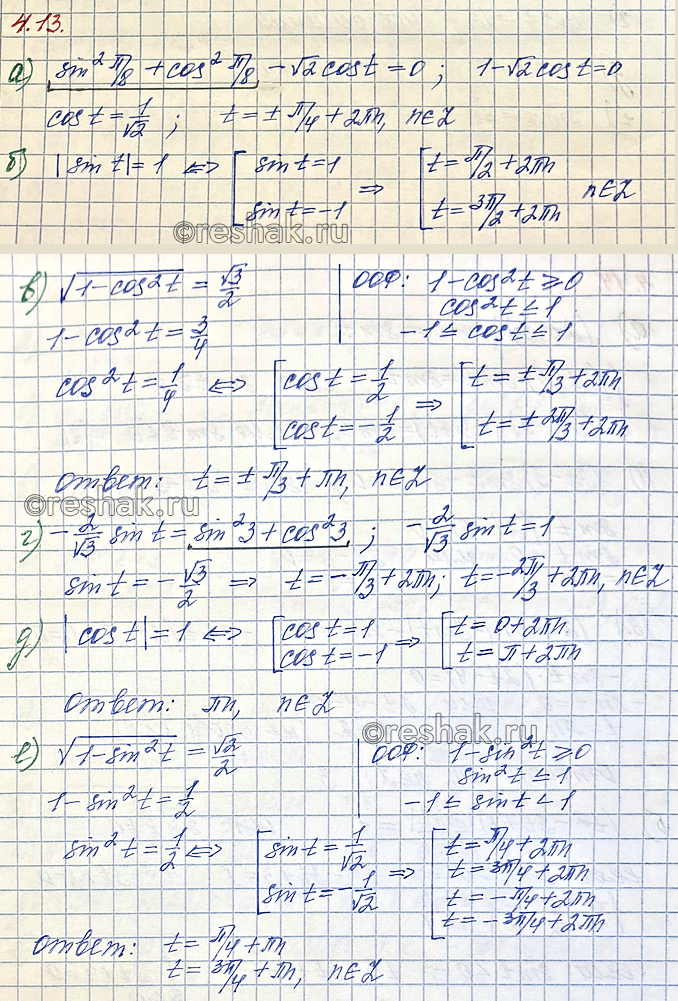 4.13.
а) sin² π/8 + cos² π/8 - √2 cos t = 0 ; 1 - √2 cos t = 0
cos t = 1/√2 ; t = ± π/4 + 2πn, n∈Z
б) |sin t| = 1 ⇔ [ sin t = 1 ⇒ [ t = π/2 + 2πn
sin t = -1 t = 3π/2 + 2πn n∈Z
©reshak.ru
в) √(1 - cos² t) = √3/2 | ООФ: 1 - cos² t ⩾ 0
1 - cos² t = 3/4 cos² t ≤ 1
-1 ≤ cos t ≤ 1
cos² t = 1/4 ⇔ [ cos t = 1/2 ⇒ [ t = ± π/3 + 2πn
cos t = - 1/2 t = ± 2π/3 + 2πn
ответ: t = ± π/3 + πn, n∈Z
©reshak.ru
г) - 2/√3 sin t = sin² 3 + cos² 3 ; - 2/√3 sin t = 1
sin t = - √3/2 ⇒ t = - π/3 + 2πn; t = - 2π/3 + 2πn, n∈Z
д) |cos t| = 1 ⇔ [ cos t = 1 ⇒ [ t = 0 + 2πn
cos t = -1 t = π + 2πn
ответ: πn, n∈Z
©reshak.ru
е) √(1 - sin² t) = √2/2 | ООФ: 1 - sin² t ⩾ 0
1 - sin² t = 1/2 sin² t ≤ 1
-1 ≤ sin t < 1
sin² t = 1/2 ⇔ [ sin t = 1/√2 ⇒ [ t = π/4 + 2πn
t = 3π/4 + 2πn
sin t = - 1/√2 t = - π/4 + 2πn
t = - 3π/4 + 2πn
ответ: t = π/4 + πn
t = 3π/4 + πn, n∈Z